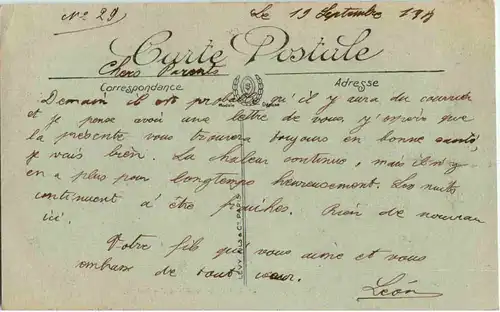 No 29
Le 19 Septembre
Carte Postale
Chers Parents
Correspondance
Adresse
Demain il est probable qu'il y aura du courrier
et je pense avoir une lettre de vous, j'espère que
la présente vous trouvera toujours en bonne santé,
je vais bien. La chaleur continue, mais il n'y
en a plus pour longtemps heureusement. Les nuits
continuent à être fraîches. Rien de nouveau
ici.
Votre fils qui vous aime et vous
embrasse de tout cœur.
Léon
LEVY FILS & Cie PARIS